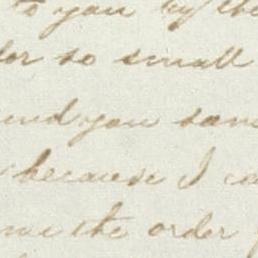 to you by the
so small
end you sam
because I ca
me the order